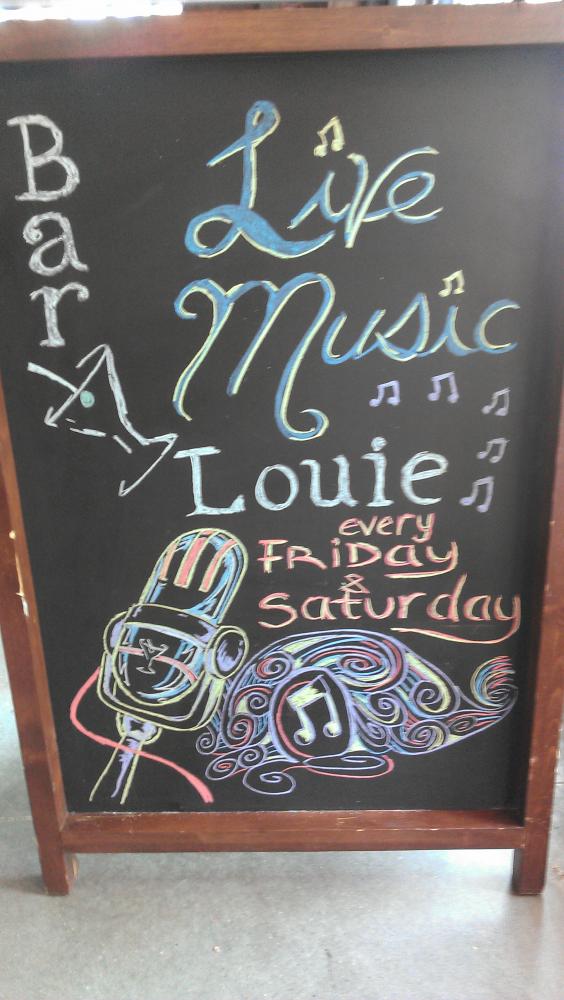 Bar
Live
Music
Louie
every
FRiDay
&
Saturday